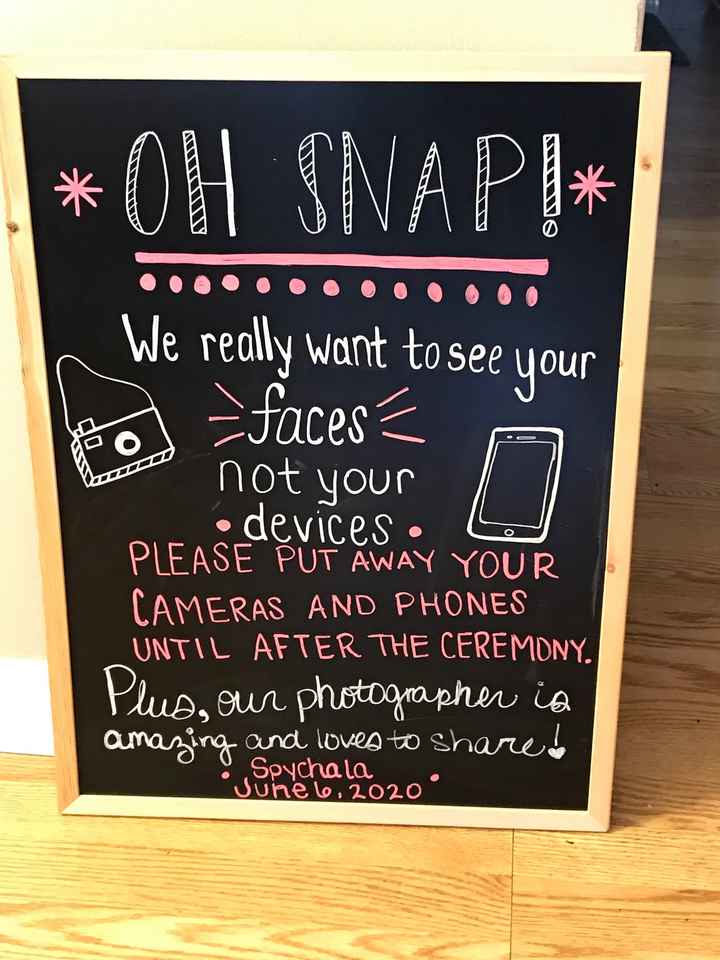 OH SNAP!
We really want to see your
faces
not your
devices
PLEASE PUT AWAY YOUR
CAMERAS AND PHONES
UNTIL AFTER THE CEREMONY.
Plus, our photographer is
amazing and loves to share!
Spychala
June 6, 2020